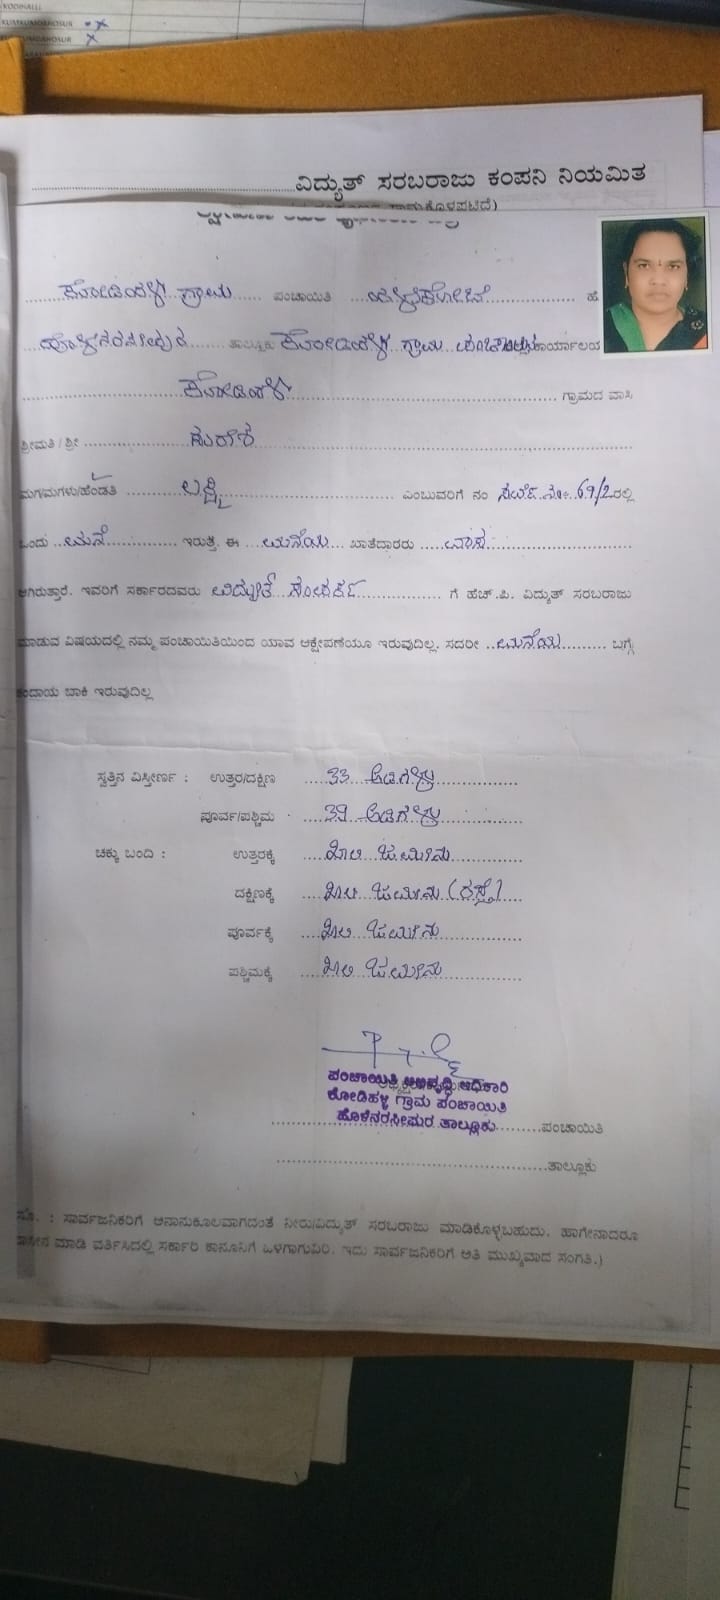 KODIHALLI
ವಿದ್ಯುತ್ ಸರಬರಾಜು ಕಂಪನಿ ನಿಯಮಿತ
ಕೋಡಿಹಳ್ಳಿ ಗ್ರಾಮ ಪಂಚಾಯಿತಿ
ಹೊಳೆನರಸೀಪುರ ತಾಲ್ಲೂಕು ಕೋಡಿಹಳ್ಳಿ ಗ್ರಾಮ ಕಾರ್ಯಾಲಯ
ಕೋಡಿಹಳ್ಳಿ ಗ್ರಾಮದ ವಾಸಿ
ಶ್ರೀಮತಿ / ಶ್ರೀ
ಮಗ/ಮಗಳು/ಹೆಂಡತಿ ಲಕ್ಷ್ಮಿ ಎಂಬುವರಿಗೆ ನಂ ಸರ್ವೆ ನಂ. 69/2 ರಲ್ಲಿ
ಒಂದು ಮನೆ ಇರುತ್ತೆ. ಈ ಮನೆಯ ಖಾತೆದಾರರು ವಾಸ
ಆಗಿರುತ್ತಾರೆ. ಇವರಿಗೆ ಸರ್ಕಾರದವರು ವಿದ್ಯುತ್ ಸಂಪರ್ಕ ಗೆ ಹೆಚ್.ಪಿ. ವಿದ್ಯುತ್ ಸರಬರಾಜು
ಮಾಡುವ ವಿಷಯದಲ್ಲಿ ನಮ್ಮ ಪಂಚಾಯಿತಿಯಿಂದ ಯಾವ ಆಕ್ಷೇಪಣೆಯೂ ಇರುವುದಿಲ್ಲ. ಸದರೀ ಮನೆಯ ಬಗ್ಗೆ
ಕಂದಾಯ ಬಾಕಿ ಇರುವುದಿಲ್ಲ
ಸ್ವತ್ತಿನ ವಿಸ್ತೀರ್ಣ : ಉತ್ತರ/ದಕ್ಷಿಣ 33 ಅಡಿಗಳು
ಪೂರ್ವ/ಪಶ್ಚಿಮ 39 ಅಡಿಗಳು
ಚಕ್ಕು ಬಂದಿ : ಉತ್ತರಕ್ಕೆ ಖಾಲಿ ಜಮೀನು
ದಕ್ಷಿಣಕ್ಕೆ ಖಾಲಿ ಜಮೀನು (ರಸ್ತೆ)
ಪೂರ್ವಕ್ಕೆ ಖಾಲಿ ಜಮೀನು
ಪಶ್ಚಿಮಕ್ಕೆ ಖಾಲಿ ಜಮೀನು
ಪಂಚಾಯಿತಿ ಅಭಿವೃದ್ಧಿ ಅಧಿಕಾರಿ
ಕೋಡಿಹಳ್ಳಿ ಗ್ರಾಮ ಪಂಚಾಯಿತಿ
ಹೊಳೆನರಸೀಪುರ ತಾಲ್ಲೂಕು ಪಂಚಾಯಿತಿ
ತಾಲ್ಲೂಕು
ಸಾರ್ವಜನಿಕರಿಗೆ ಅನಾನುಕೂಲವಾಗದಂತೆ ನೀರು/ವಿದ್ಯುತ್ ಸರಬರಾಜು ಮಾಡಿಕೊಳ್ಳಬಹುದು. ಹಾಗೇನಾದರೂ
ಮಾಡಿ ವರ್ತಿಸಿದಲ್ಲಿ ಸರ್ಕಾರಿ ಕಾನೂನಿಗೆ ಒಳಗಾಗುವಿರಿ. ಇದು ಸಾರ್ವಜನಿಕರಿಗೆ ಅತಿ ಮುಖ್ಯವಾದ ಸಂಗತಿ.)